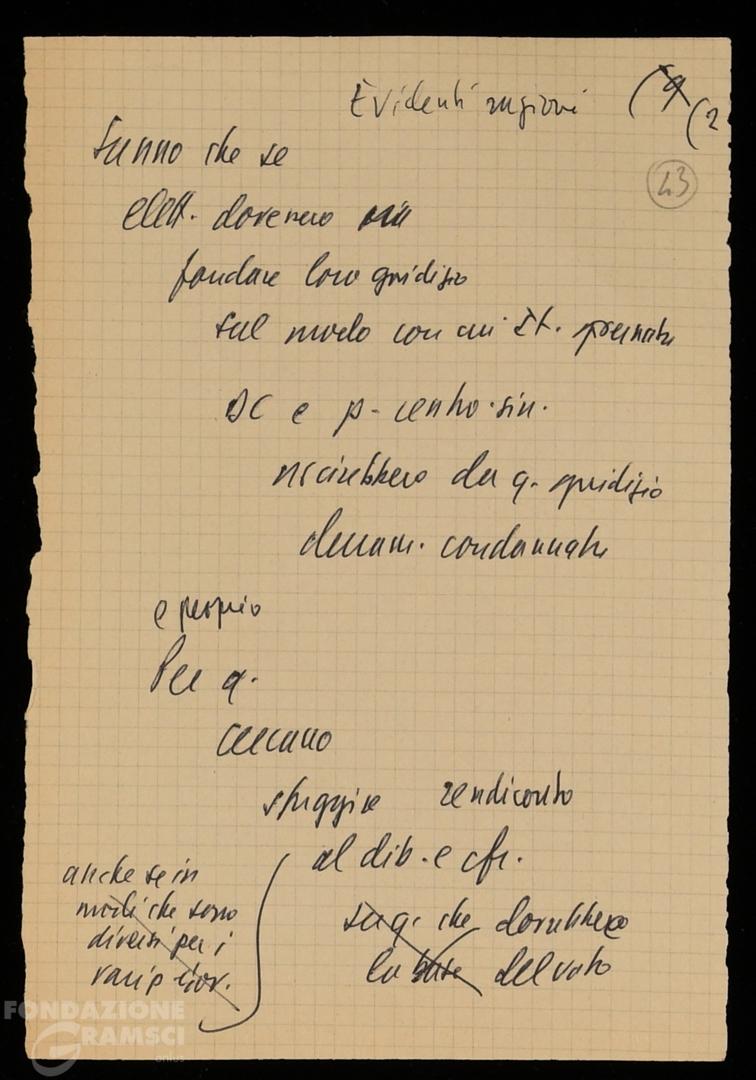 Evidenti ragioni (9 (2
23
Sanno che se
elett. dovessero
fondare loro giudizio
sul modo con cui st.
DC e p. centro-sin.
uscirebbero da q. giudizio
condannate
e proprio
Per q.
cercano
sfuggire rendiconto
al dib. e cfr.
anche se in
modi che sono
diversi per i
vari p
su q. che dovrebbero
la base del voto
FONDAZIONE
GRAMSCI
onlus